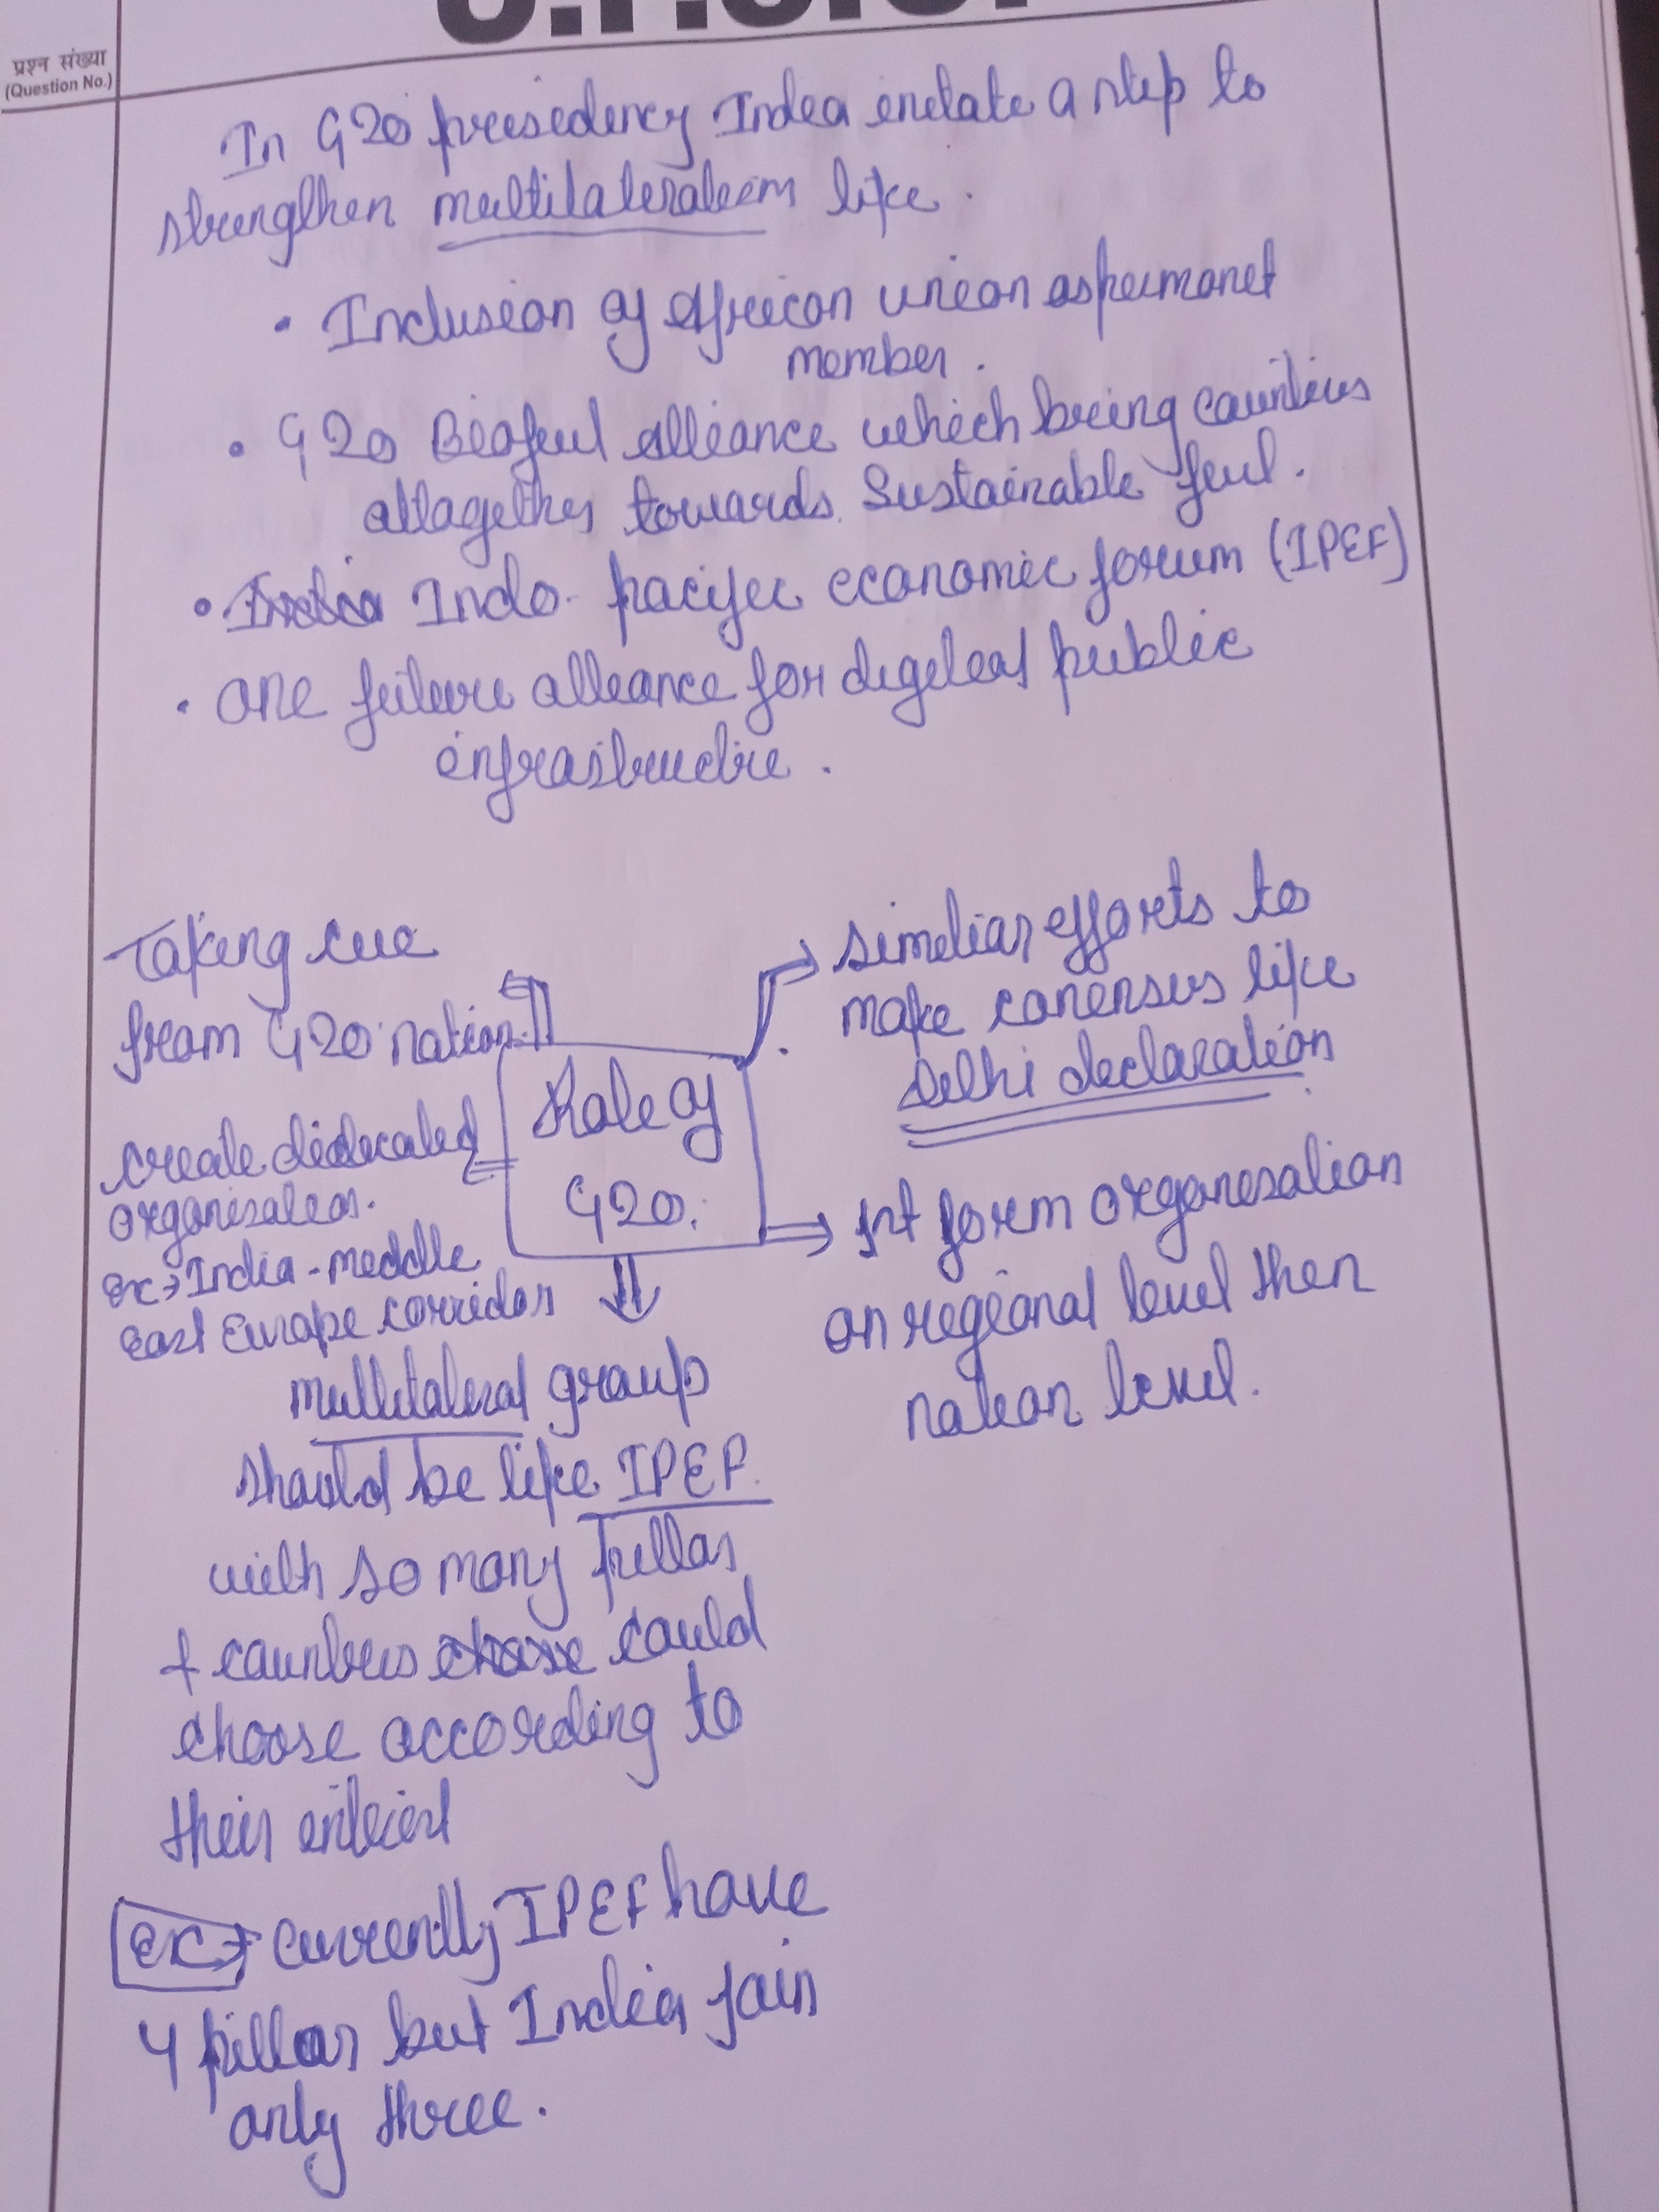 प्रश्न संख्या
(Question No.)
In G20 presidency India enitate a step to
strengthen multilateralism like.
• Inclusion of African union as permanet
member.
• G20 Biofeul alliance which bring countries
altogether towards Sustainable feul.
• Indo-pacific economic forum (IPEF)
• one future alliance for digital public
infrastructure.
Taking cue
from G20 nation.
create didecated
organisation.
Ex→ India-middle
East Europe corridor
Role of
G20.
similiar efforts to
make conensus like
Delhi declaration
1st form organisation
on regional level then
nation level.
multilateral group
should be like IPEF.
with so many pillar
+ countries could
choose according to
their interest
Ex→ currently IPEF have
4 pillar but India join
only three.